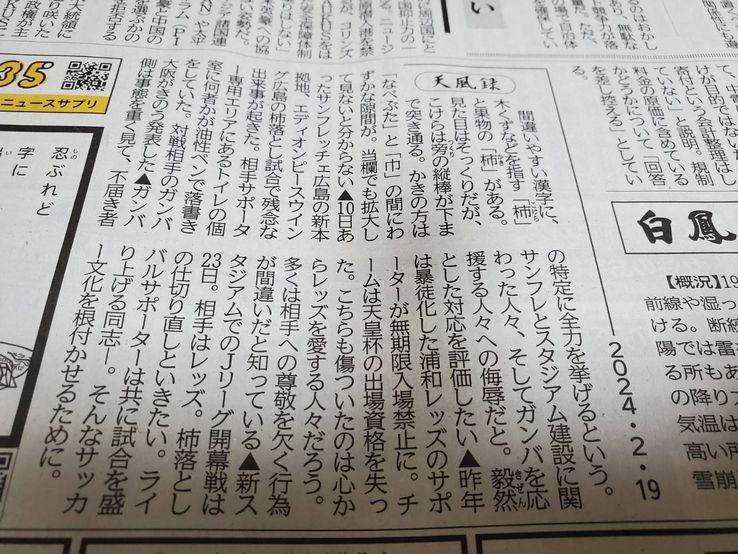 が目的ではない
寄りという会計整理はし
ていない」と説明。規制
料金の原価に含めている
かどうかについて「回答
を差し控える」としてい
白鳳
【概況】19
前線や湿っ
ける。断続
陽では雷
る所もあ
の降り
気温は
高い所
雪崩
2024・2・19
天風録
間違いやすい漢字に、
木くずなどを指す「杮こけら」
と果物の「柿かき」がある。
見た目はそっくりだが、
こけらは旁つくりの縦棒が下ま
で突き通る。かきの方は
「なべぶた」と「巾」の間にわ
ずかな隙間が。当欄でも拡大し
て見ないと分からない▲10日あ
ったサンフレッチェ広島の新本
拠地、エディオンピースウイン
グ広島の杮落とし試合で残念な
出来事が起きた。相手サポータ
ー専用エリアにあるトイレの個
室に何者かが油性ペンで落書き
をしていた。対戦相手のガンバ
大阪がきのう発表した▲ガンバ
側は事態を重く見て、不届き者
の特定に全力を挙げるという。
サンフレとスタジアム建設に関
わった人々、そしてガンバを応
援する人々への侮辱だと。毅然きぜん
とした対応を評価したい▲昨年
は暴徒化した浦和レッズのサポ
ーターが無期限入場禁止に。チ
ームは天皇杯の出場資格を失っ
た。こちらも傷ついたのは心か
らレッズを愛する人々だろう。
多くは相手への尊敬を欠く行為
が間違いだと知っている▲新ス
タジアムでのJリーグ開幕戦は
23日。相手はレッズ。杮落とし
の仕切り直しといきたい。ライ
バルサポーターは共に試合を盛
り上げる同志―。そんなサッカ
ー文化を根付かせるために。
35
ニュースサプリ
忍しのぶれど
字に